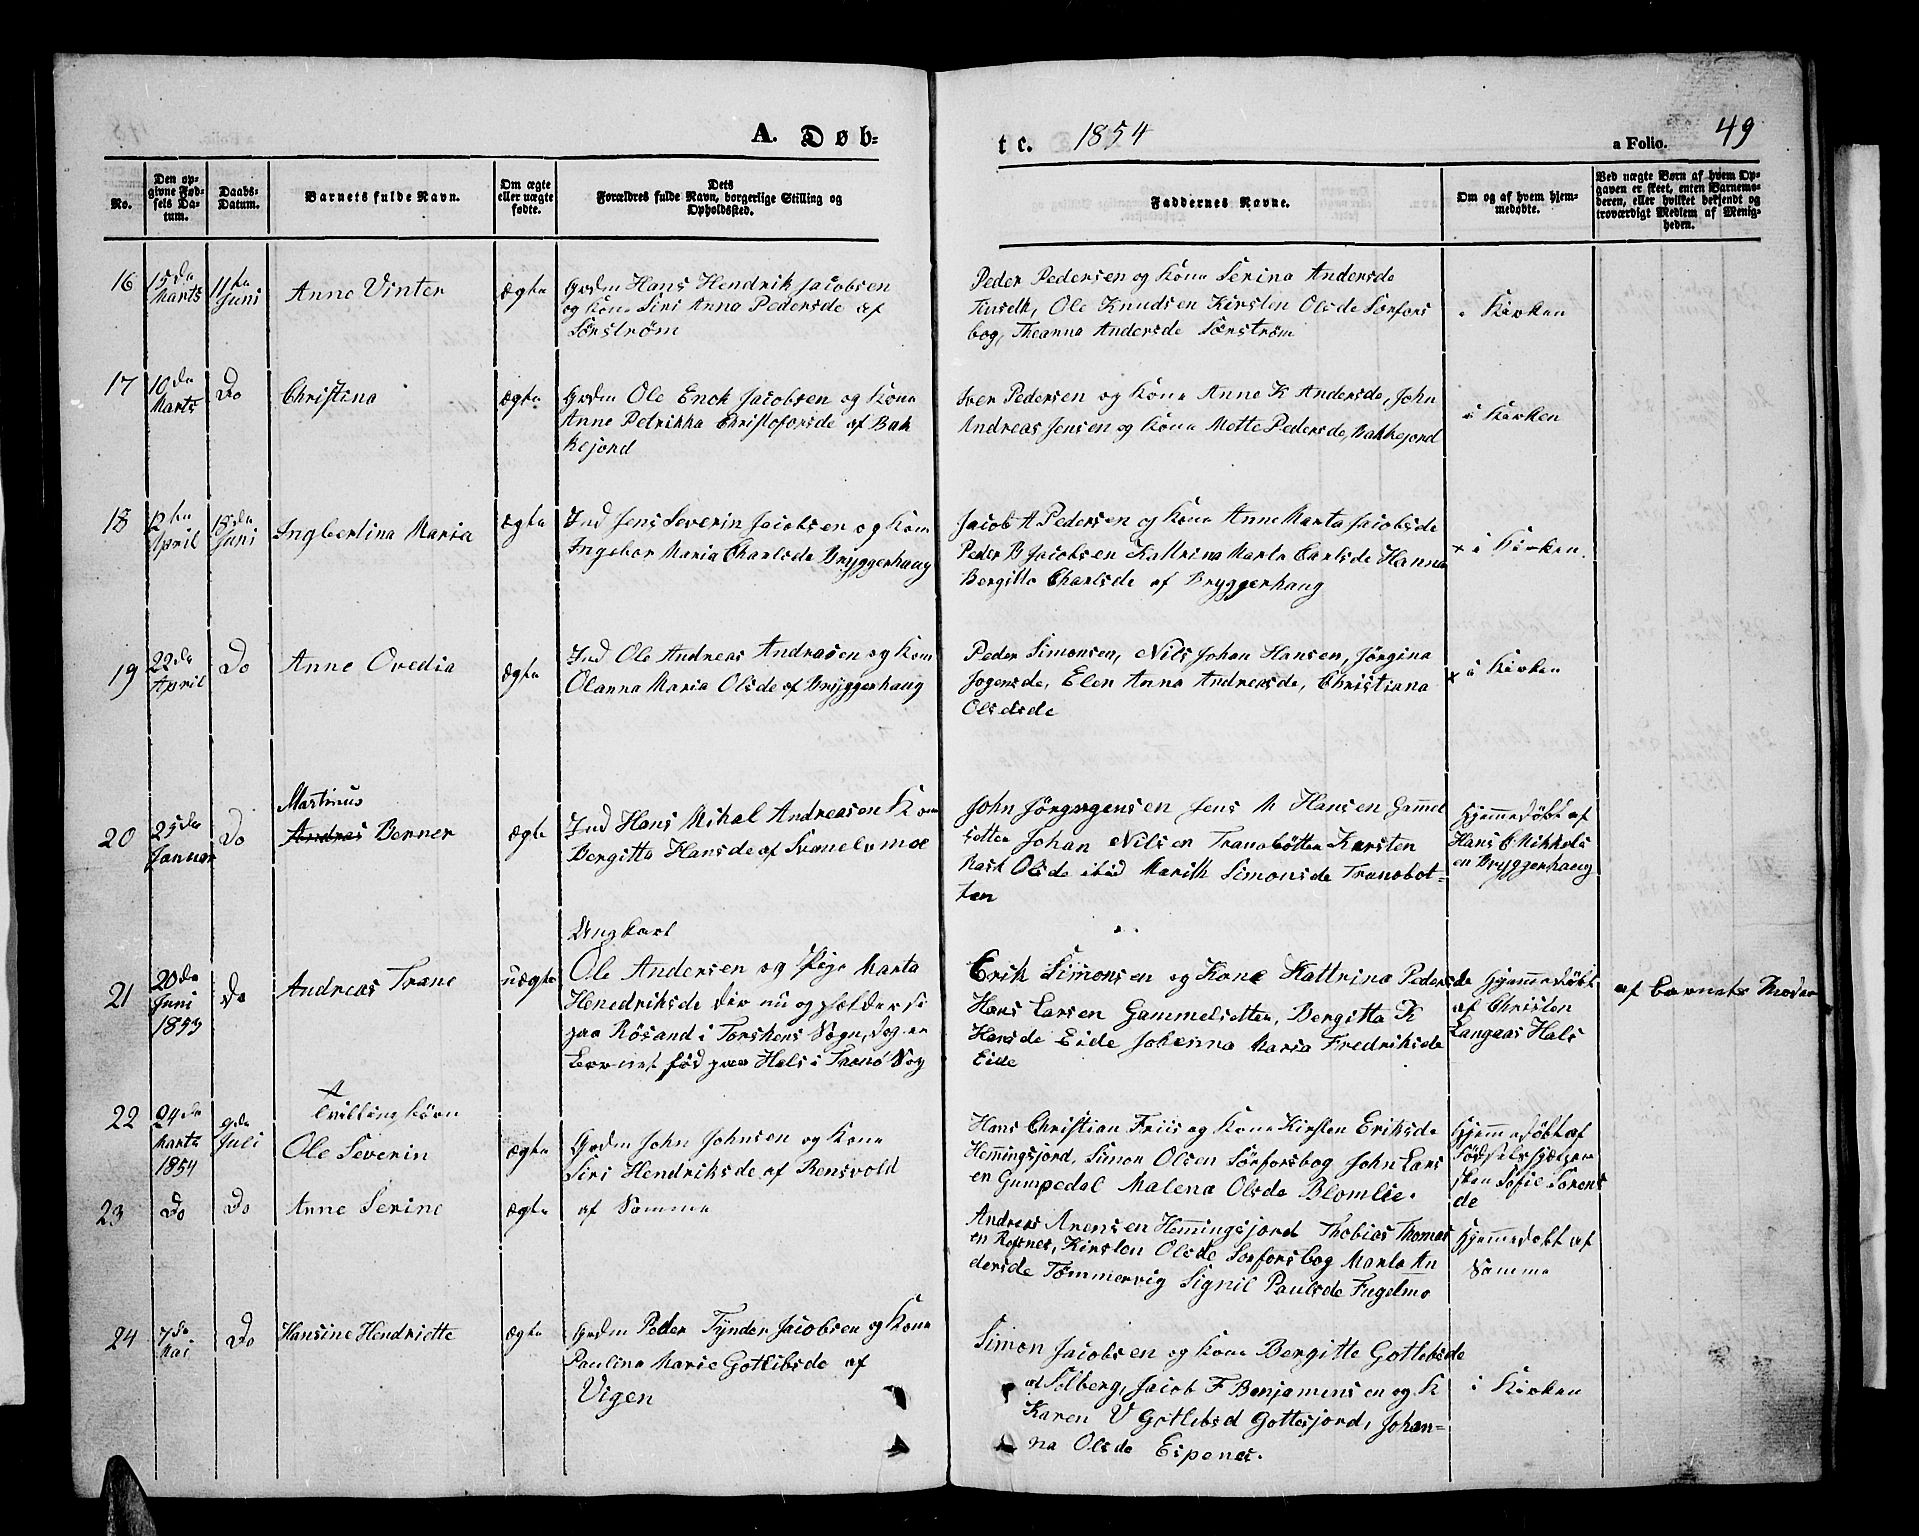 A. Døb-
te. 1854
a Folio. 49
No.
Den op-
givne Fød-
sels Da-
tum.
Daabs-
Datum.
Barnets fulde Navn.
Om ægte
eller uægte
fødte.
Dets
Forældres fulde Navn, borgerlige Stilling og
Opholdssted.
Faddernes Navne.
Om og af hvem hjem-
medøbte.
Ved uægte Børn af hvem Op-
gaven er skeet, enten Barnemo-
deren, eller hvilket bekjendt og
troværdigt Medlem af Menig-
heden.
16
15de
Marts
11te
Juni
Anne Vinter
ægte
Grdm Hans Hendrik Jacobsen
og Kone Siri Anna Pedersde af
Sørstrøm
Peder Pedersen og Kone Serina Andersde
Ole Knudsen Kirsten Olsde Sørfors
bog, Theanna Andersde Sørstrøm
i Kirken
17
10de
Marts
Do
Christina
ægte
Grdm Ole Enok Jacobsen og Kone
Anne Petrikka Christoforsde af Bak
kejord
Iver Pedersen og Kone Anne K Andersde, John
Andreas Jensen og Kone Mette Pedersde, Bakkejord
i Kirken
18
12te
April
18de
Juni
Ingbertina Maria
ægte
Ind Jens Severin Jacobsen og Kone
Ingebor Maria Charlsde Bryggerhaug
Jacob A Pedersen og Kone Anne Marta Jacobsde
Peder B Jacobsen Kattrina Marta Carlsde Hanna
Bergitte Charlsde af Bryggerhaug
x i Kirken
19
22de
April
Do
Anne Ovedia
ægte
Ind Ole Andreas Andrasen og Kone
Olanna Maria Olsde af Bryggerhaug
Peder Simonsen, Nils Johan Hansen, Jørgina
Jogensde, Elen Anna Andreasde, Christiana
Olsdsde
x i Kirken
20
25de
Januar
Do
Martinus
Andras Berner
ægte
Ind Hans Mikal Andreasen Kone
Bergitta Hansde af Svanelvmoe
John Jörgngensen Jens M Hansen Gammel
setten Johan Nilsen Tranobötten Karsten
Mast Olsde ibid Marith Simonsde Tranobot-
ten
Hjemmedøbt af
Hans C Mikkels
en Bryggerhaug
21
20de
Juni
1853
Do
Andreas Trane
uægte
Ungkarl
Ole Andersen og Pige Marta
Henedriksde der nu opholder si
paa Rösand i Torskens Sogn, dog er
Barnet fød paa Hals i Tranö Sog
Erik Simonsen og Kone Kattrina Pedersde
Hans Larsen Gammelsetten, Bergitta K
Hansde Eide Johanna Maria Fredriksde
Eide
Hjemmedøbt
af Christen
Langaas Hals
af Barnets Moder
22
24de
Marts
1854
9de
Juli
Tvillingbørn
Ole Severin
ægte
Grdm John Johnsen og Kone
Siri Hendriksde af Rensvold
Hans Christian Friis og Kone Kirsten Eriksde
Hemmingsjord, Simon Olsen Sørforsbog John Lars
en Gumpedal Malena Olsde Blomlie.
Hjemmedøbt af
Fødselshjælpe
sken Sofie Sørens
de
23
Do
Do
Anne Serine
ægte
af Samme
Andreas Arensen Hemmingsjord Thobias Thomas
en Rofsnes, Kirsten Olsde Sørforsbog Marta An
dersde Tömmervig Signil Paulsde Fugelmo
Hjemmedøbt af
Samme
24
7de
Mai
Do
Hansine Hendriette
ægte
Grdm Peder Tynder Jacobsen og Kone
Paulina Marie Gotlibsde af
Vigen
Simon Jacobsen og Kone Bergitte Gotlebsde
af Solberg, Jacob F Benjamensen og K
Karen V Gotlebsd Gottesjord, Johan-
na Olsde Espenes.
i Kirken